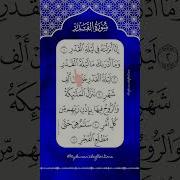 سُورَةُ الْقَدْرِ
إِنَّا أَنْزَلْنَاهُ فِي لَيْلَةِ الْقَدْرِ
وَمَا أَدْرَاكَ مَا لَيْلَةُ الْقَدْرِ
لَيْلَةُ الْقَدْرِ خَيْرٌ مِنْ أَلْفِ
شَهْرٍ تَنَزَّلُ الْمَلَائِكَةُ
وَالرُّوحُ فِيهَا بِإِذْنِ رَبِّهِمْ مِنْ
كُلِّ أَمْرٍ سَلَامٌ هِيَ حَتَّى
مَطْلَعِ الْفَجْرِ